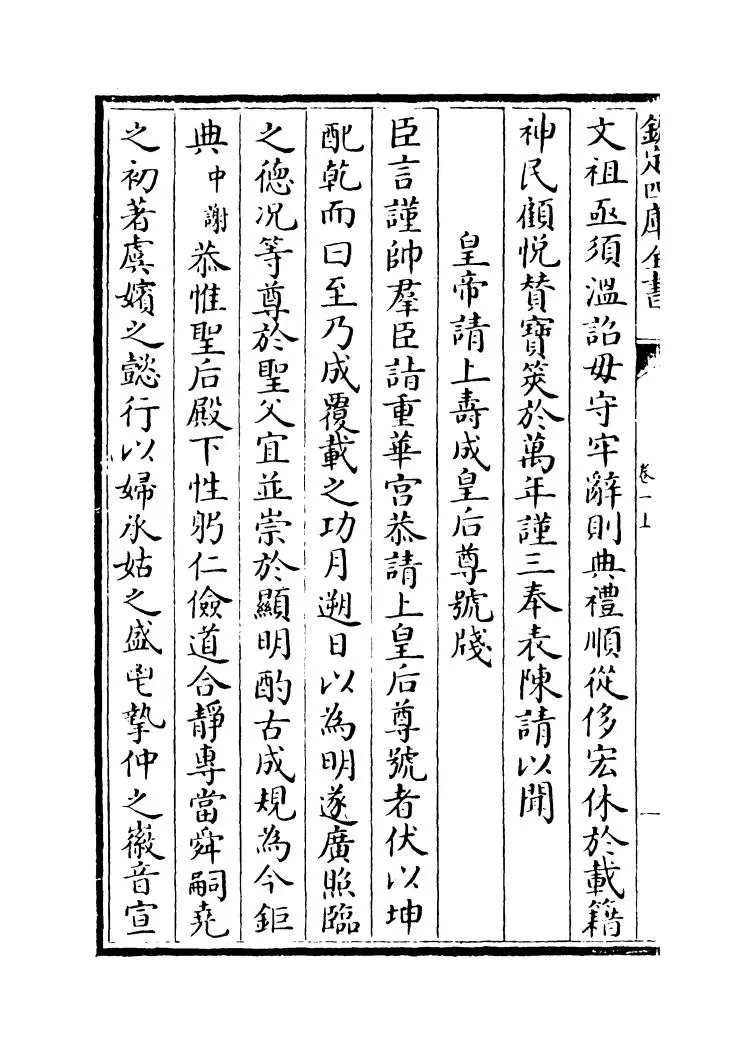 欽定四庫全書
卷一上
一
文祖亟須溫詔毋守牢辭則典禮順從侈宏休於載籍
神民顧悅賛寶筴於萬年謹三奉表陳請以聞
皇帝請上壽成皇后尊號牋
臣言謹帥羣臣詣重華宮恭請上皇后尊號者伏以坤
配乾而曰至乃成覆載之功月遡日以為明遂廣照臨
之徳况等尊於聖父宜並崇於顯明酌古成規為今鉅
典中謝恭惟聖后殿下性躬仁儉道合靜專當舜嗣堯
之初著虞嬪之懿行以婦承姑之盛毓摯仲之徽音宣